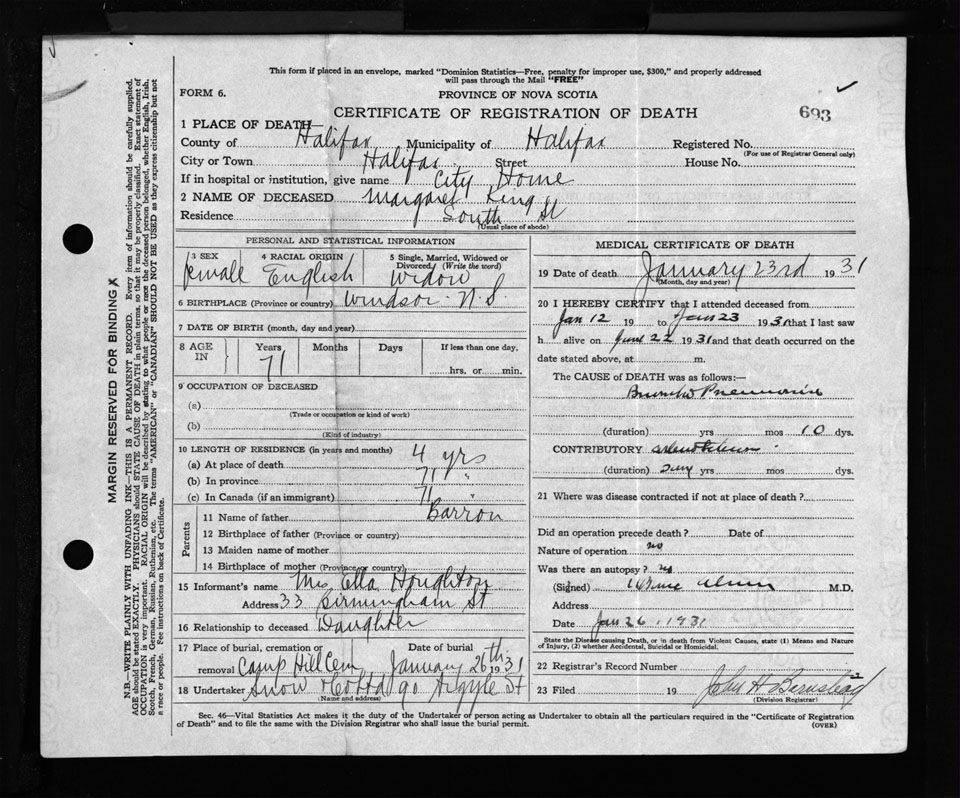 This form if placed in an envelope, marked "Dominion Statistics—Free, penalty for improper use, $300," and properly addressed
will pass through the Mail "FREE"
FORM 6.
PROVINCE OF NOVA SCOTIA
CERTIFICATE OF REGISTRATION OF DEATH
693
1 PLACE OF DEATH
County of Halifax Municipality of Halifax Registered No.
(For use of Registrar General only)
City or Town Halifax Street House No.
If in hospital or institution, give name City Home
2 NAME OF DECEASED Margaret King
Residence South St
(Usual place of abode)
PERSONAL AND STATISTICAL INFORMATION
3 SEX 4 RACIAL ORIGIN 5 Single, Married, Widowed or
Divorced (Write the word)
Female English Widow
6 BIRTHPLACE (Province or country) Windsor N.S.
7 DATE OF BIRTH (month, day and year)
8 AGE IN Years Months Days If less than one day,
71 hrs. or min.
9 OCCUPATION OF DECEASED
(a)
(Trade or occupation or kind of work)
(b)
(Kind of industry)
10 LENGTH OF RESIDENCE (in years and months)
(a) At place of death 4 yrs
(b) In province 71 "
(c) In Canada (if an immigrant) 71 "
Parents
11 Name of father Barron
12 Birthplace of father (Province or country)
13 Maiden name of mother
14 Birthplace of mother (Province or country)
15 Informant's name Mrs Ella Houghton
Address 33 Birmingham St
16 Relationship to deceased Daughter
17 Place of burial, cremation or Date of burial
removal Camp Hill Cem January 26th 1931
18 Undertaker Snow & Co Ltd 90 Argyle St
(Name and address)
MEDICAL CERTIFICATE OF DEATH
19 Date of death January 23rd 1931
(Month, day and year)
20 I HEREBY CERTIFY that I attended deceased from
Jan 12 19 to Jan 23 1931 that I last saw
h alive on 22 1931 and that death occurred on the
date stated above, at m.
The CAUSE of DEATH was as follows:—
Pneumonia
(duration) yrs mos 10 dys.
CONTRIBUTORY
(duration) yrs mos dys.
21 Where was disease contracted if not at place of death?
Did an operation precede death? Date of
Nature of operation no
Was there an autopsy? no
(Signed) M.D.
Address
Date Jan 26, 1931
State the Disease causing Death, or in death from Violent Causes, state (1) Means and Nature
of Injury, (2) whether Accidental, Suicidal or Homicidal.
22 Registrar's Record Number
23 Filed 19 John H Barnstead
(Division Registrar)
Sec. 46—Vital Statistics Act makes it the duty of the Undertaker or person acting as Undertaker to obtain all the particulars required in the "Certificate of Registration
of Death" and to file the same with the Division Registrar who shall issue the burial permit.
(OVER)
MARGIN RESERVED FOR BINDING
N.B.—WRITE PLAINLY WITH UNFADING INK—THIS IS A PERMANENT RECORD. Every item of information should be carefully supplied.
AGE should be stated EXACTLY. PHYSICIANS should STATE CAUSE OF DEATH in plain terms, so that it may be properly classified. Exact statement of
OCCUPATION is very important. RACIAL ORIGIN will be described by stating to what people or race the deceased person belonged, whether English, Irish,
Scotch, French, German, Russian, Ruthenian, etc. The terms "AMERICAN" or "CANADIAN" SHOULD NOT BE USED as they express citizenship but not
a race or people. See instructions on back of Certificate.